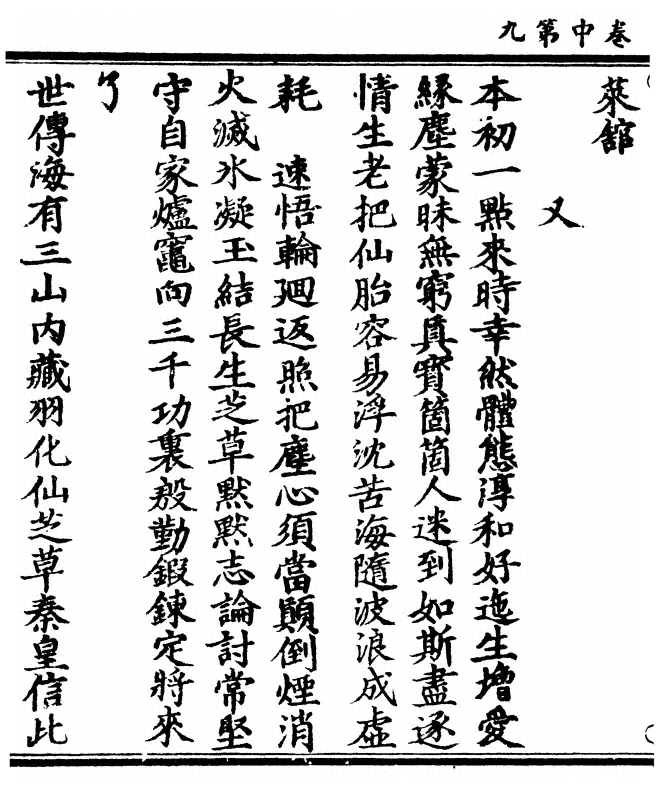 卷中第九
萊舘
又
本初一點來時幸然體態淳和好迤生增愛
緣塵蒙昧無窮真寳箇箇人迷到如斯盡逐
情生老把仙胎容易浮沈苦海隨波浪成虛
耗　速悟輪廻返照把塵心須當顛倒煙消
火滅水凝玉結長生芝草默默志論討常堅
守自家爐竈向三千功裏慇勤鍜鍊定將來
了
世傳海有三山內藏羽化仙芝草秦皇信此